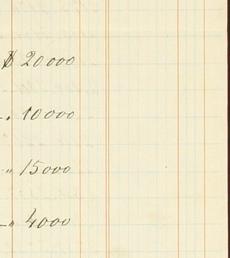 $ 20000
-„ 10000
-„ 15000
-„ 4000